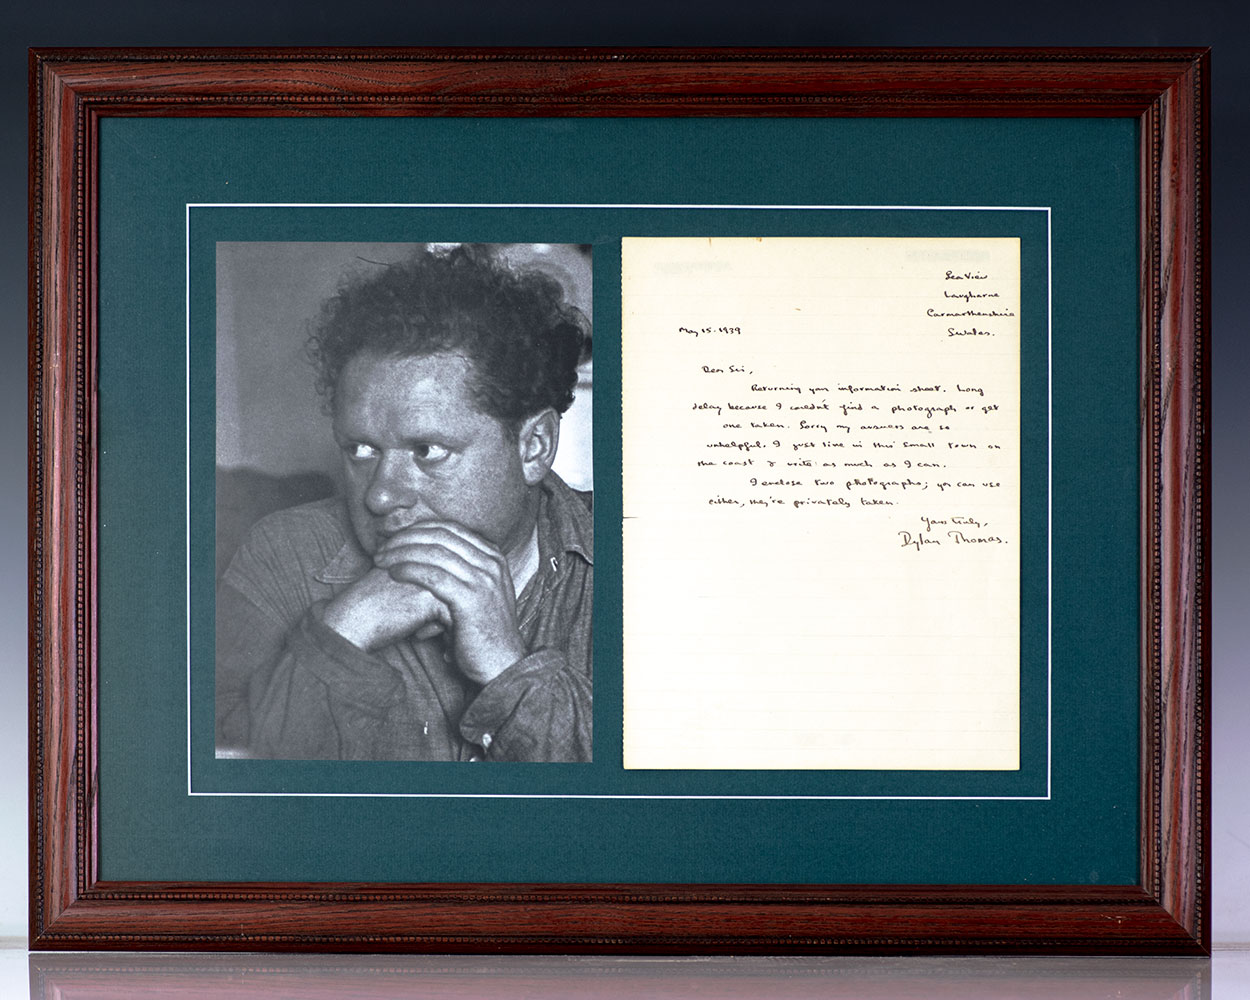 Sea View
Laugharne
Carmarthenshire
S. Wales.
May 15. 1939
Dear Sir,
Returning your information sheet. Long
delay because I couldn't find a photograph or get
one taken. Sorry my answers are so
unhelpful. I just live in this small town on
the coast & write as much as I can.
I enclose two photographs; you can use
either, they're privately taken.
Yours truly,
Dylan Thomas.